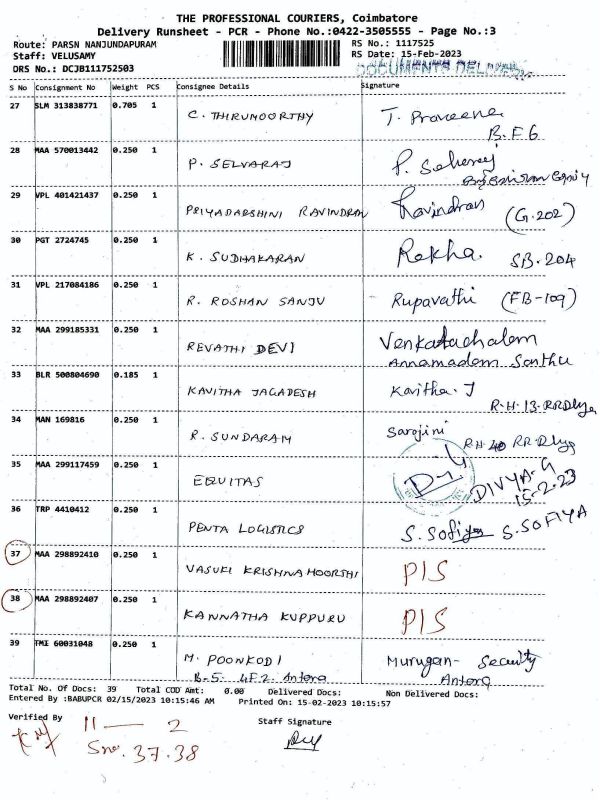 THE PROFESSIONAL COURIERS, Coimbatore
Delivery Runsheet - PCR - Phone No.:0422-3505555 - Page No.:3
Route: PARSN NANJUNDAPURAM RS No.: 1117525
Staff: VELUSAMY RS Date: 15-Feb-2023
DRS No.: DCJB111752503 DOCUMENTS
S No Consignment No Weight PCS Consignee Details Signature
27 SLM 313838771 0.705 1 C. THIRUMOORTHY T. Praveena
B.F6
28 MAA 570013442 0.250 1 P. SELVARAJ
29 VPL 401421437 0.250 1 PRIYADARSHINI RAVINDRAN Ravindran (G.202)
30 PGT 2724745 0.250 1 K. SUDHAKARAN Rekha. SB-204
31 VPL 217084186 0.250 1 R. ROSHAN SANJU Rupavathi (FB-109)
32 MAA 299185331 0.250 1 REVATHI DEVI Venkatachalam
33 BLR 500804690 0.185 1 KAVITHA JAGADESH Kavitha.J
R.H.13-RR
34 MAN 169816 0.250 1 R. SUNDARAM Sarojini
RH 40 RR
35 MAA 299117459 0.250 1 EQUITAS DIVYA-G
15-2-23
36 TRP 4410412 0.250 1 PENTA LOGISTICS S. Sofiya S. SOFIYA
37 MAA 298892410 0.250 1 VASUKI KRISHNAMOORSHI P/S
38 MAA 298892407 0.250 1 KANNATHA KUPPURU P/S
39 TMI 60031048 0.250 1 M. POONKODI Murugan- Security
B-5 4F2 Antara Antara
Total No. Of Docs: 39 Total COD Amt: 0.00 Delivered Docs: Non Delivered Docs:
Entered By :BABUPCR 02/15/2023 10:15:46 AM Printed On: 15-02-2023 10:15:57
Verified By 11 — 2 Staff Signature
Sno. 37.38